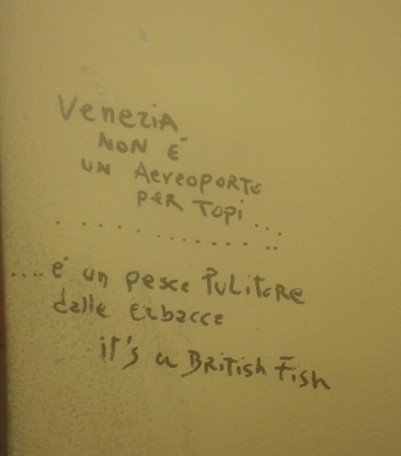 Venezia
NON È
UN AeReOPORTO
PER TOPI...
....................
....è un pesce PULITORE
dalle ERBACCE
it's a BRitish Fish